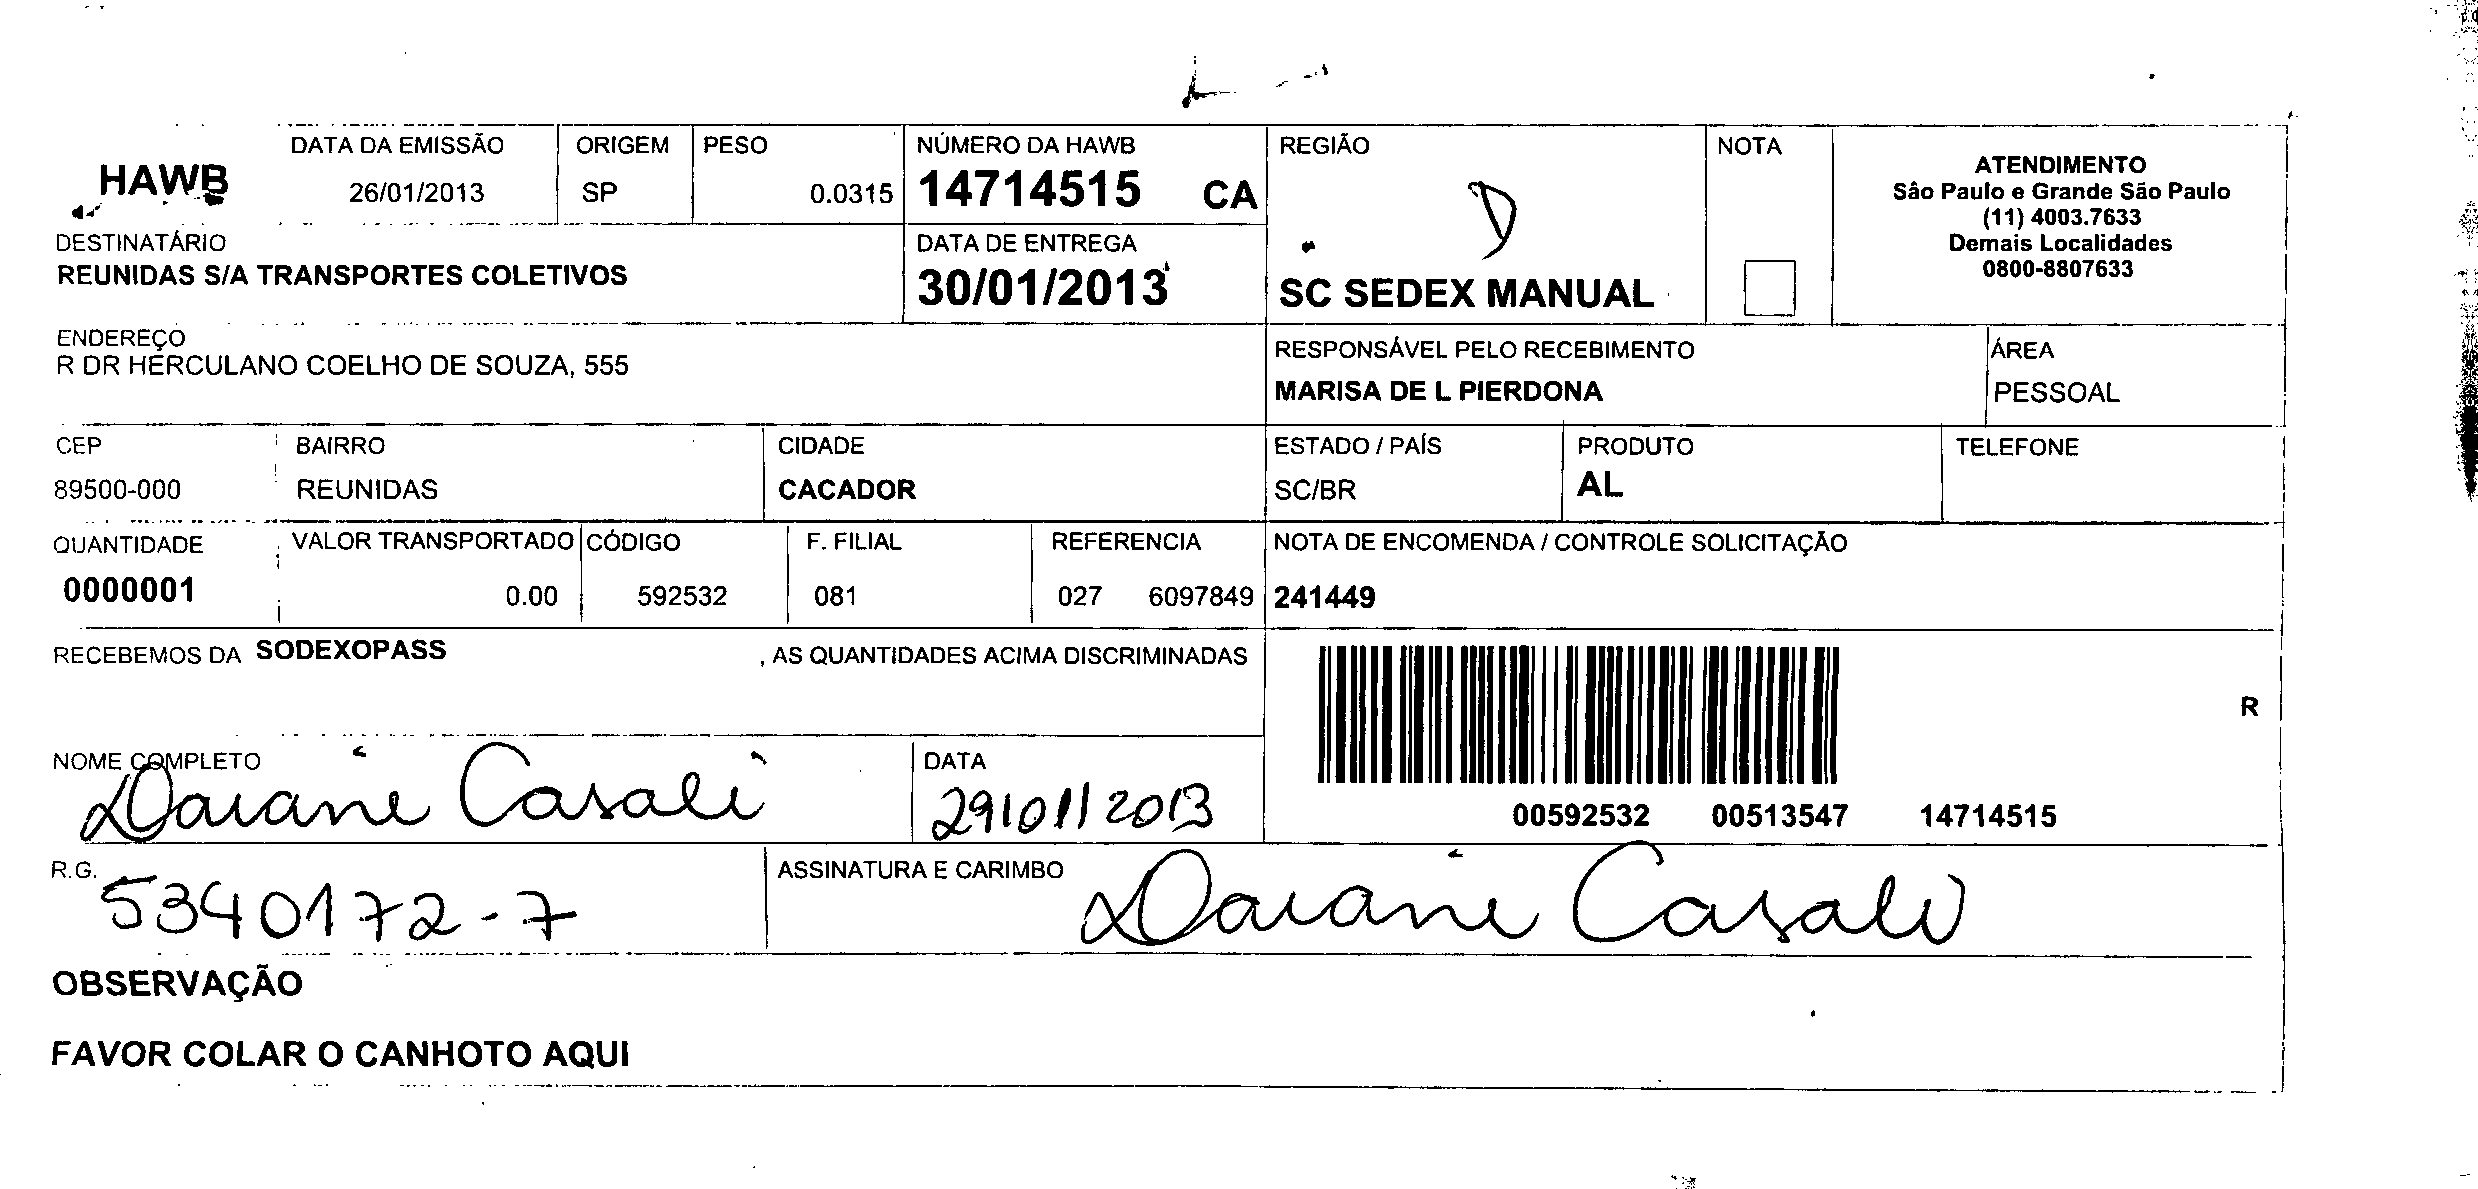 HAWB
DATA DA EMISSÃO
26/01/2013
ORIGEM
SP
PESO
0.0315
NÚMERO DA HAWB
14714515 CA
REGIÃO
SC SEDEX MANUAL
NOTA
ATENDIMENTO
São Paulo e Grande São Paulo
(11) 4003.7633
Demais Localidades
0800-8807633
DESTINATÁRIO
REUNIDAS S/A TRANSPORTES COLETIVOS
DATA DE ENTREGA
30/01/2013
ENDEREÇO
R DR HERCULANO COELHO DE SOUZA, 555
RESPONSÁVEL PELO RECEBIMENTO
MARISA DE L PIERDONA
ÁREA
PESSOAL
CEP
89500-000
BAIRRO
REUNIDAS
CIDADE
CACADOR
ESTADO / PAÍS
SC/BR
PRODUTO
AL
TELEFONE
QUANTIDADE
0000001
VALOR TRANSPORTADO
0.00
CÓDIGO
592532
F. FILIAL
081
REFERENCIA
027 6097849
NOTA DE ENCOMENDA / CONTROLE SOLICITAÇÃO
241449
RECEBEMOS DA SODEXOPASS , AS QUANTIDADES ACIMA DISCRIMINADAS
R
00592532 00513547 14714515
NOME COMPLETO
Daiane Casali
DATA
29/01/2013
R.G.
5340172-7
ASSINATURA E CARIMBO
Daiane Casali
OBSERVAÇÃO
FAVOR COLAR O CANHOTO AQUI